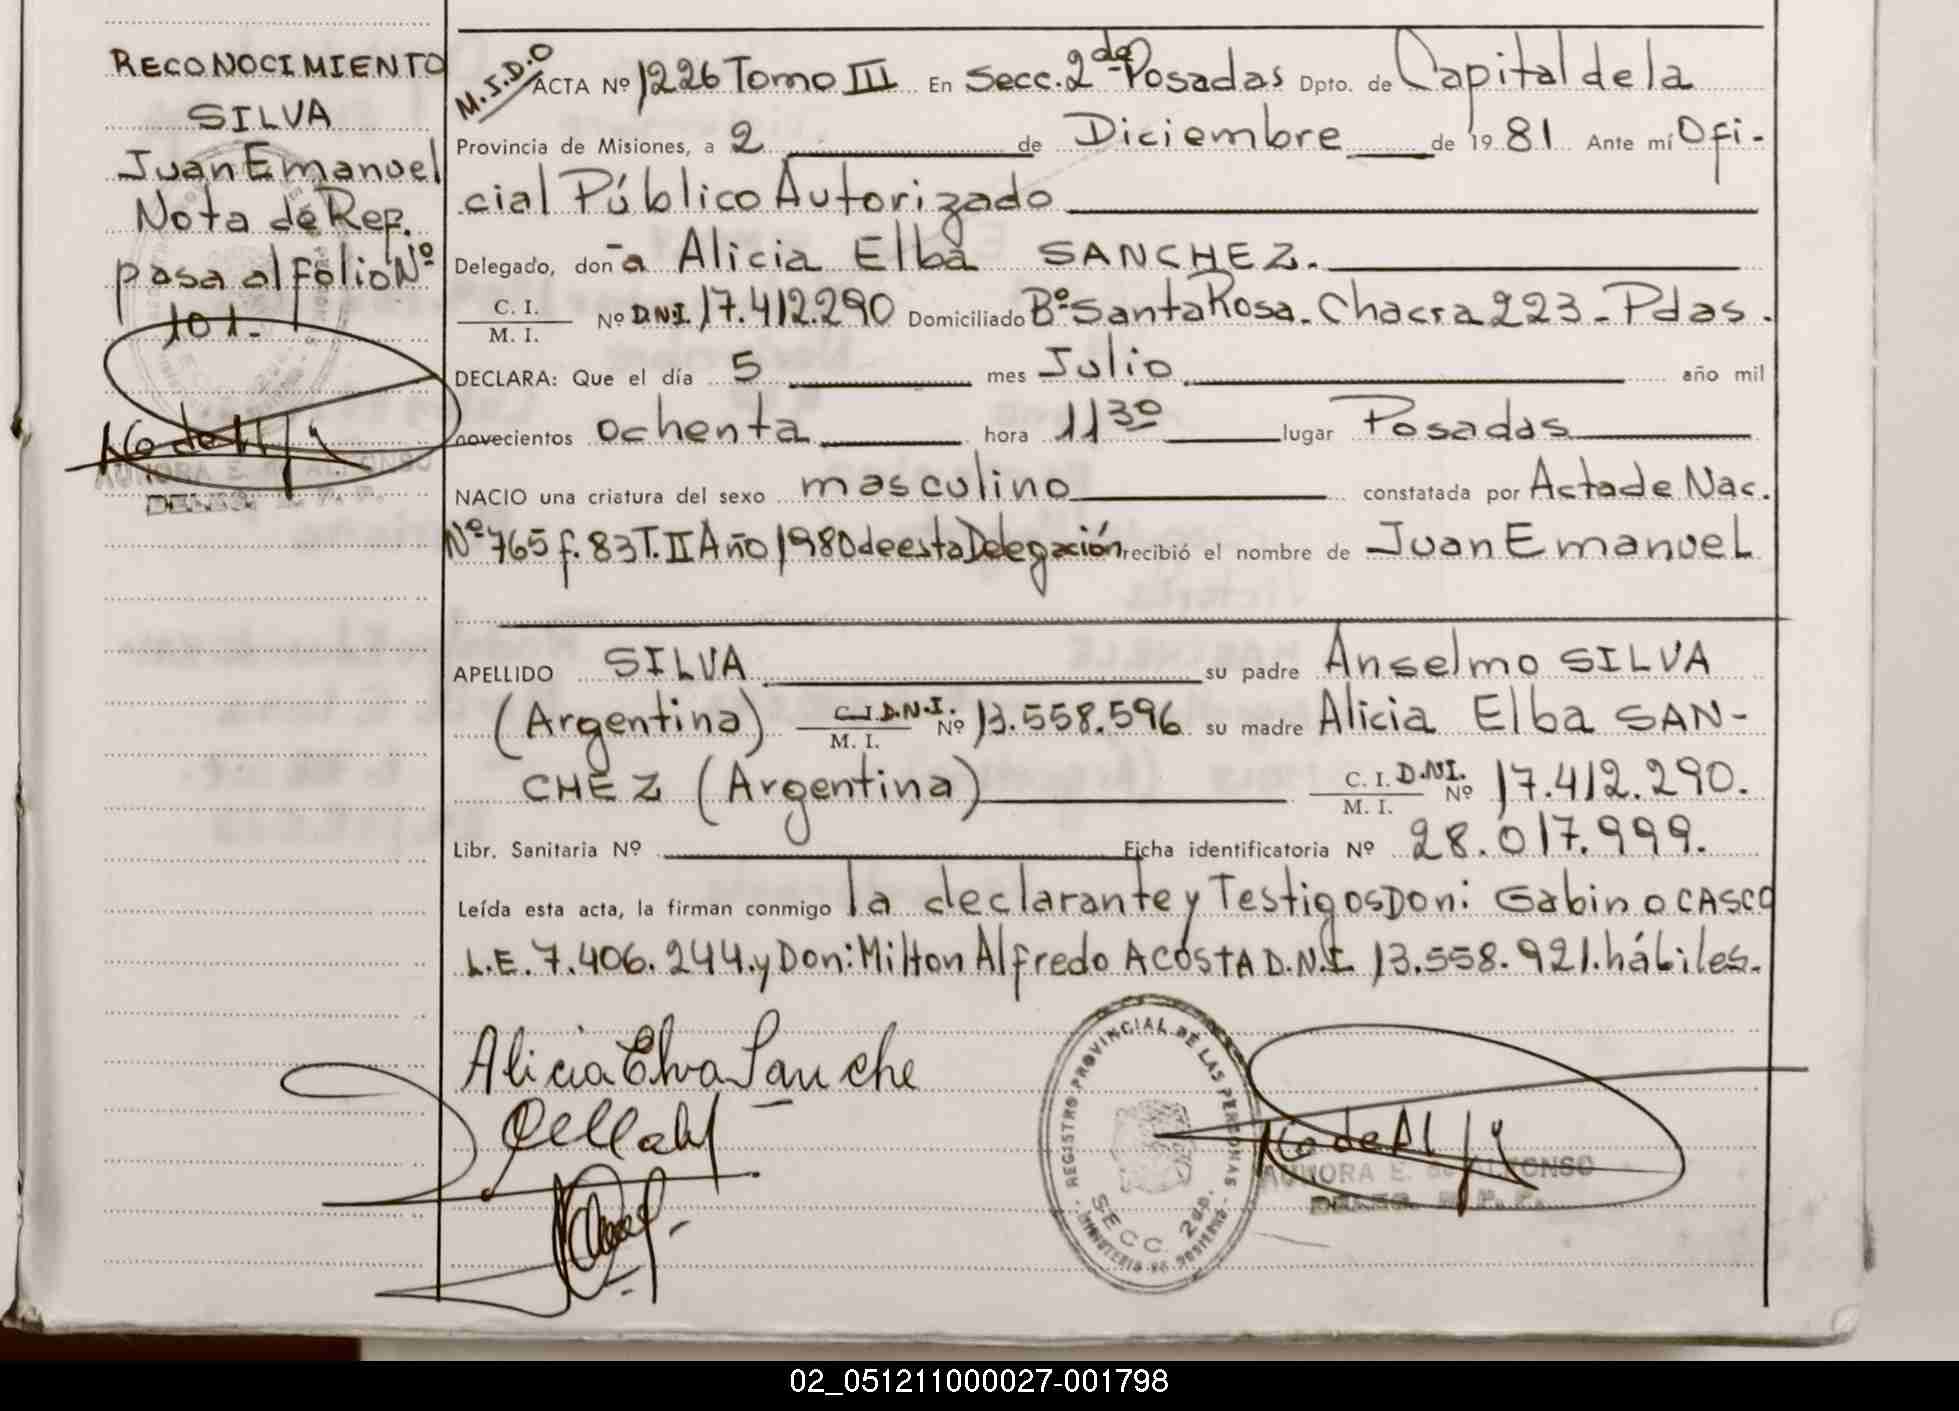 RECONOCIMIENTO
SILVA
Juan Emanuel
Nota de Rep.
pasa al folio Nº
101.-
M.I.D.O
ACTA Nº 1226 Tomo III En Secc. 2da Posadas Dpto. de Capital de la
Provincia de Misiones, a 2 de Diciembre de 1981 Ante mí Ofi-
cial Público Autorizado
Delegado, don-a Alicia Elba SANCHEZ.
C. I. M. I. Nº D.N.I. 17.412.290 Domiciliado Bº Santa Rosa. Chacra 223 - Pdas.
DECLARA: Que el día 5 mes Julio año mil
novecientos ochenta hora 11 30 lugar Posadas
NACIO una criatura del sexo masculino constatada por Acta de Nac.
Nº 765 f. 83 T. II Año 1980 de esta Delegación recibió el nombre de Juan Emanuel
APELLIDO SILVA su padre Anselmo SILVA
(Argentina) C. I. D.N.I. M. I. Nº 13.558.596 su madre Alicia Elba SAN-
CHEZ (Argentina) C. I. D.N.I. M. I. Nº 17.412.290.
Libr. Sanitaria Nº Ficha identificatoria Nº 28.017.999.
Leída esta acta, la firman conmigo la declarante y Testigos Don: Gabino CASCO
L.E. 7.406.244. y Don: Milton Alfredo ACOSTA D.N.I. 13.558.921. hábiles.
Alicia Elva Sanche
REGISTRO PROVINCIAL DE LAS PERSONAS
SECC. 2da.
MINISTERIO DE GOBIERNO
AURORA E. de ALFONSO
DELEG. R. P. P.
02_051211000027-001798